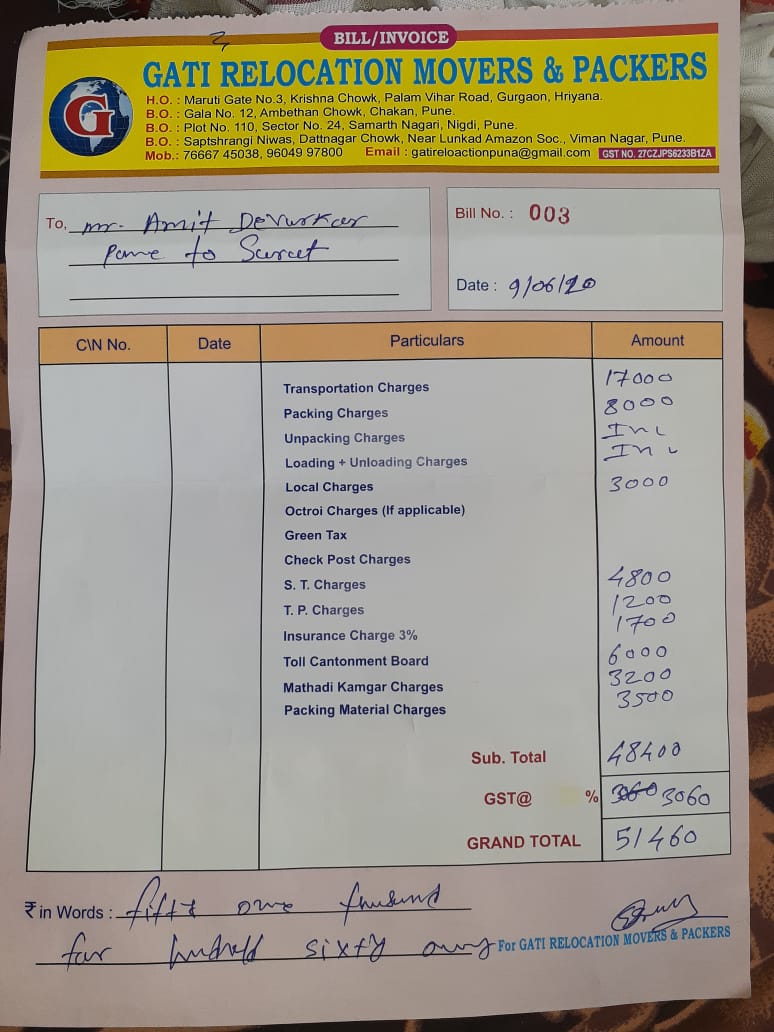 BILL/INVOICE
GATI RELOCATION MOVERS & PACKERS
G
H.O. : Maruti Gate No.3, Krishna Chowk, Palam Vihar Road, Gurgaon, Hriyana.
B.O. : Gala No. 12, Ambethan Chowk, Chakan, Pune.
B.O. : Plot No. 110, Sector No. 24, Samarth Nagari, Nigdi, Pune.
B.O. : Saptshrangi Niwas, Dattnagar Chowk, Near Lunkad Amazon Soc., Viman Nagar, Pune.
Mob.: 76667 45038, 96049 97800 Email : gatireloactionpuna@gmail.com GST NO. 27CZJPS6233B1ZA
To, mr. Amit Devurkar
Pune to Surat
Bill No. : 003
Date : 9/06/20
C\N No. Date Particulars Amount
Transportation Charges 17000
Packing Charges 8000
Unpacking Charges Inc
Loading + Unloading Charges Inc
Local Charges 3000
Octroi Charges (If applicable)
Green Tax
Check Post Charges
S. T. Charges 4800
T. P. Charges 1200
Insurance Charge 3% 1700
Toll Cantonment Board 6000
Mathadi Kamgar Charges 3200
Packing Material Charges 3500
Sub. Total 48400
GST@ % 3060 3060
GRAND TOTAL 51460
₹ in Words : fifty one thusund
far hundred sixty only
For GATI RELOCATION MOVERS & PACKERS